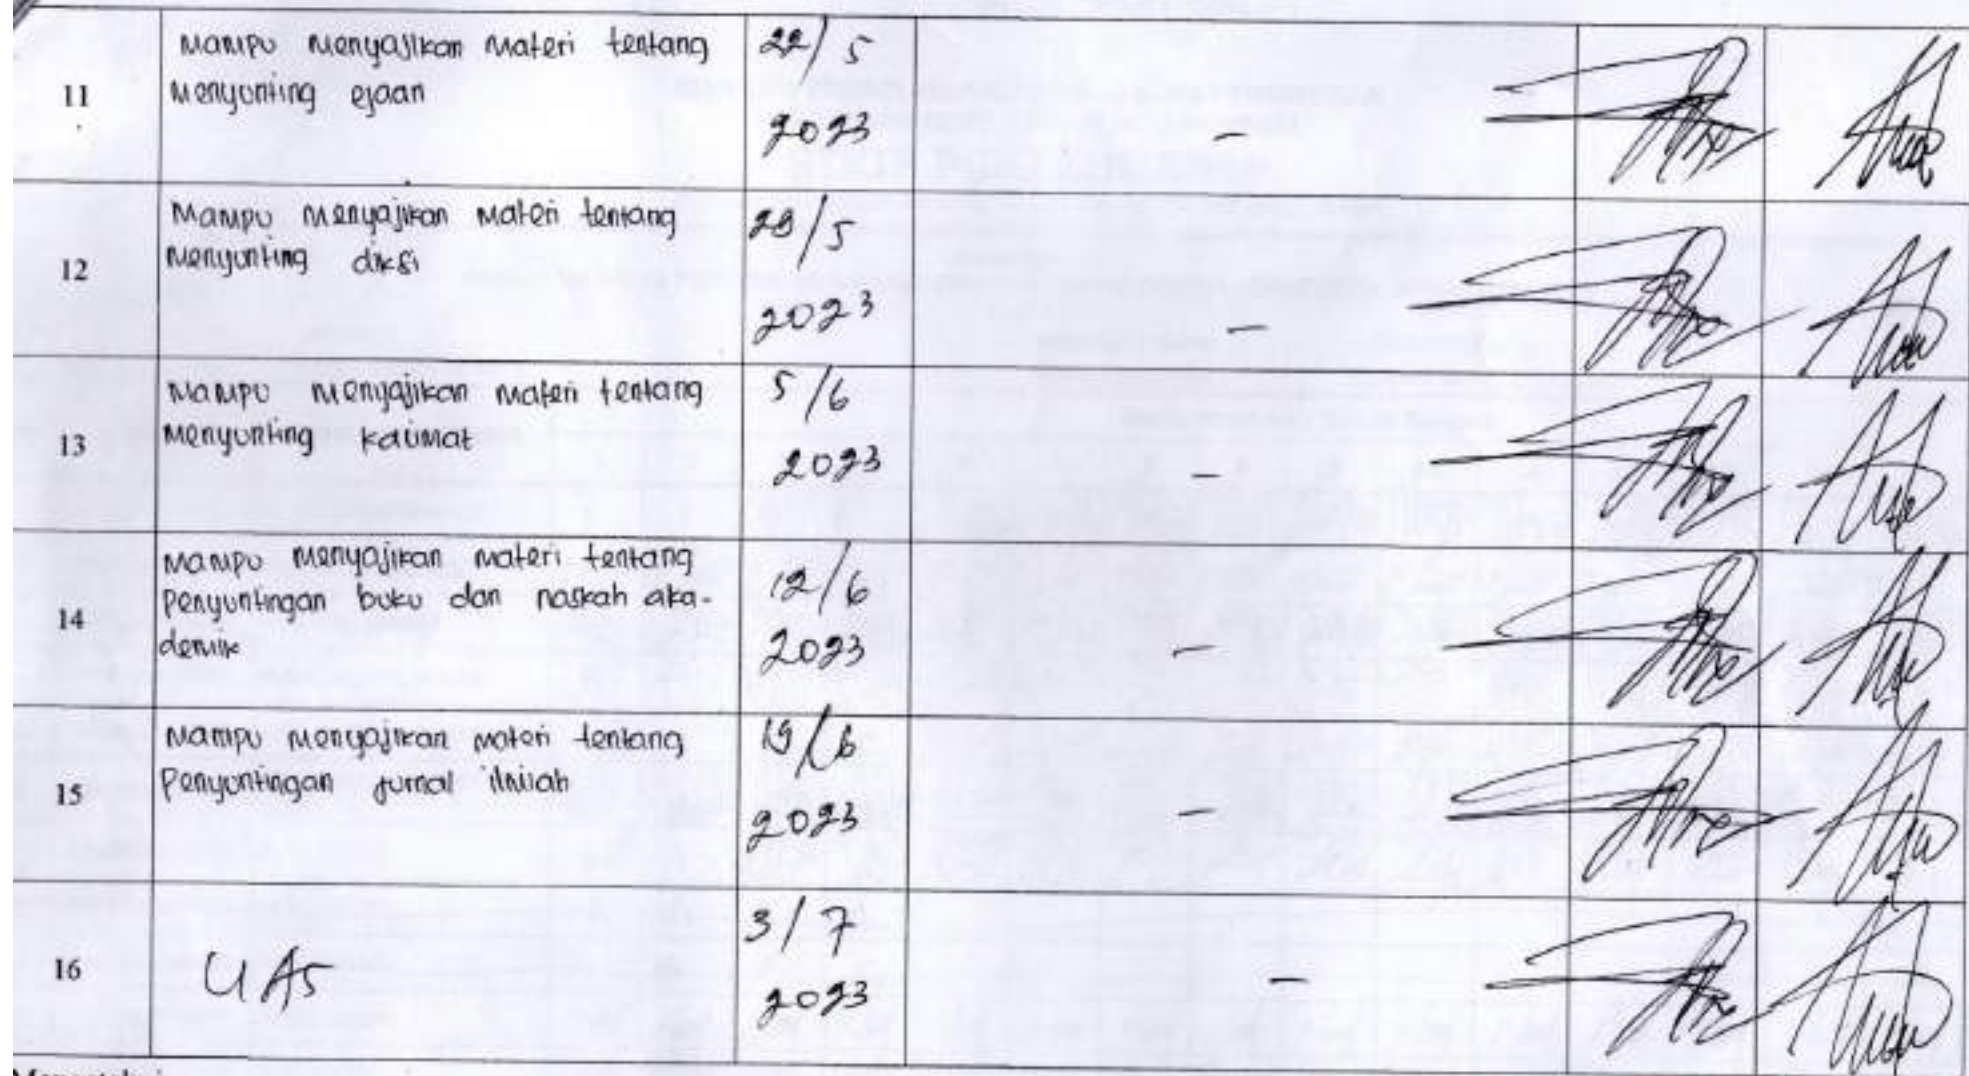 11
Mampu menyajikan materi tentang
menyunting ejaan
22/5
2023
-
12
Mampu menyajikan materi tentang
menyunting diksi
29/5
2023
-
13
Mampu menyajikan materi tentang
menyunting kalimat
5/6
2023
-
14
Mampu menyajikan materi tentang
penyuntingan buku dan naskah aka-
demik
12/6
2023
-
15
Mampu menyajikan materi tentang
penyuntingan jurnal ilmiah
19/6
2023
-
16
UAS
3/7
2023
-